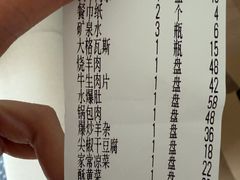 餐巾纸 2 个 4
矿泉水 3 瓶 6
大格瓦斯 1 瓶 15
烧羊肉 1 盘 48
牛生肉片 1 盘 42
水爆肚 1 盘 58
锅包肉 1 盘 48
爆炒羊杂 1 盘 36
尖椒干豆腐 1 盘 18
家常凉菜 1 盘 22
酥黄菜 1 盘